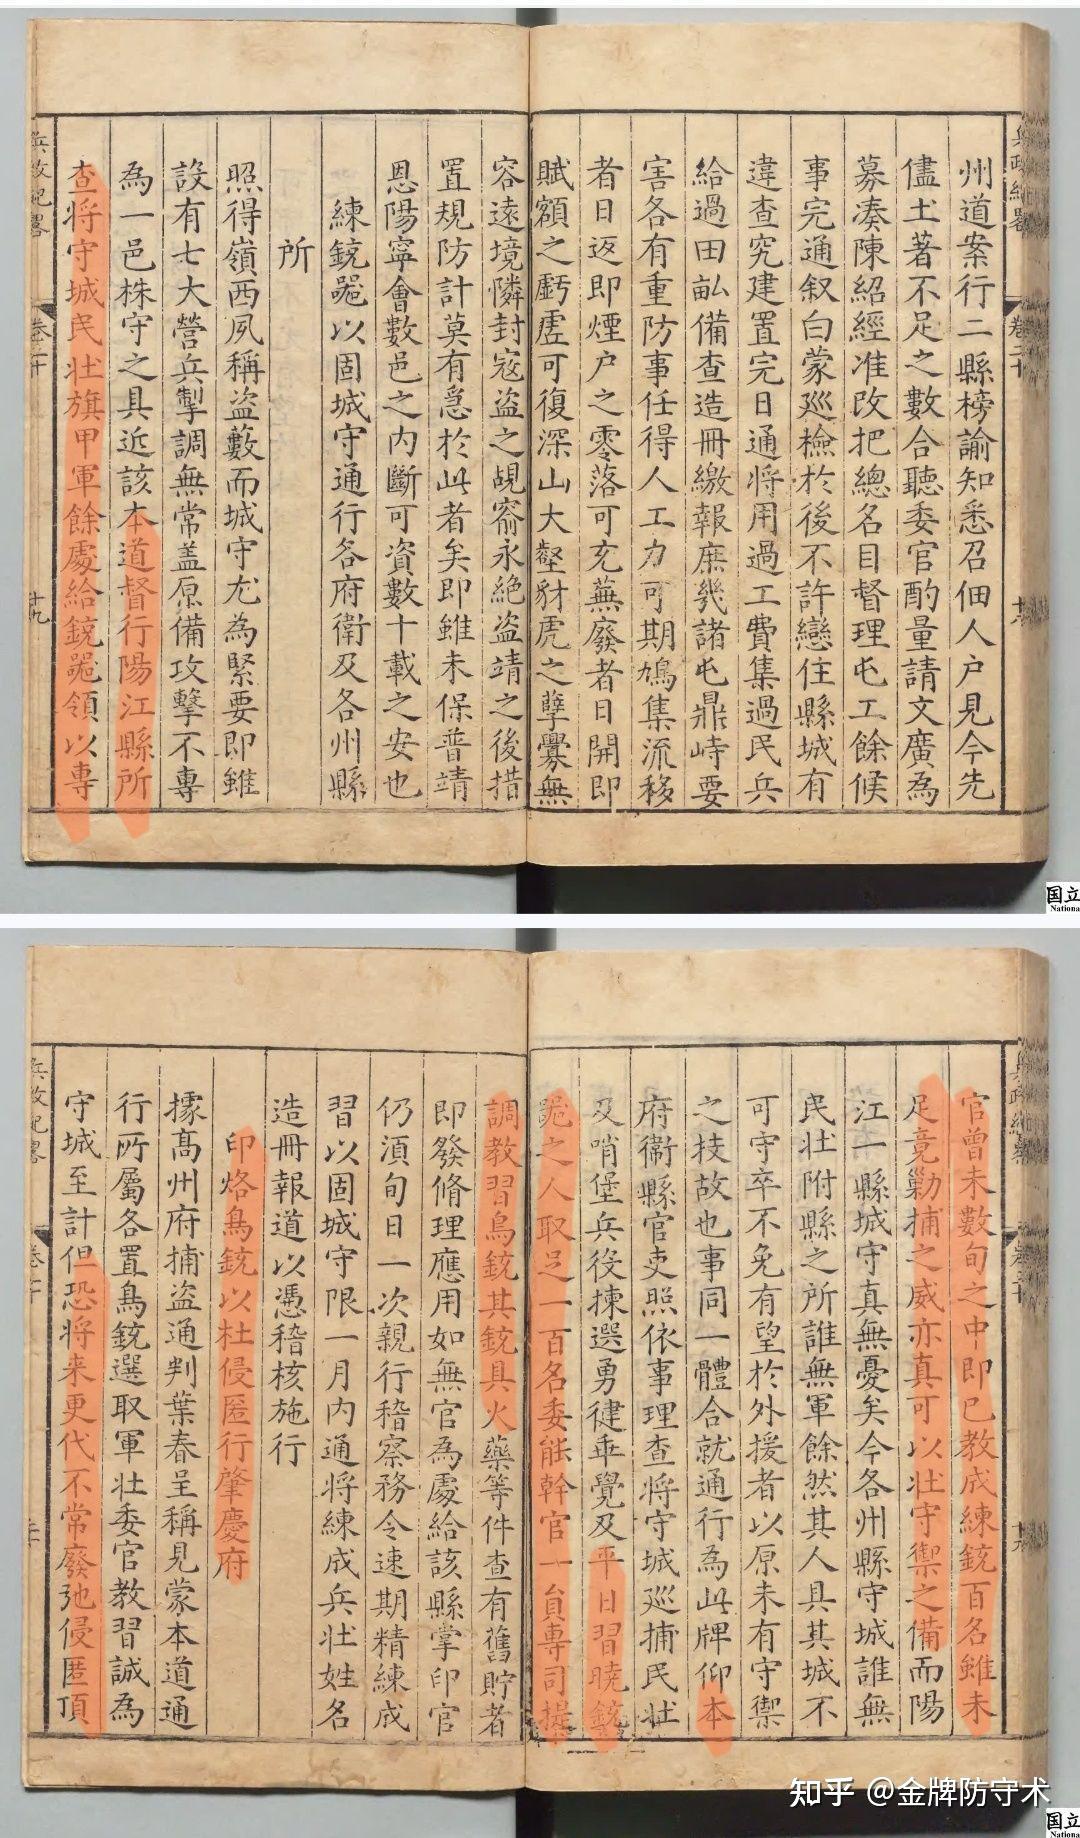 兵政紀畧
卷二十
州道案行二縣榜諭知悉召佃人户見今先
儘土著不足之數合聽委官酌量請文廣為
募凑陳紹經准改把總名目督理屯工餘候
事完通叙白蒙巡檢於後不許戀住縣城有
違查究建置完日通將用過工費集過民兵
給過田畝備查造冊繳報庶幾諸屯鼎峙要
害各有重防事任得人工力可期鳩集流移
者日返即煙户之零落可充蕪廢者日開即
賦額之虧虗可復深山大壑豺虎之孽釁無
容遠境隣封寇盗之覘窬永絕盗靖之後措
置規防計莫有急於此者矣即雖未保普靖
恩陽寧會數邑之内斷可資數十載之安也
練銃噐以固城守通行各府衛及各州縣
所
照得嶺西夙稱盗藪而城守尤為緊要即雖
設有七大營兵掣調無常盖原備攻擊不專
為一邑株守之具近該本道督行陽江縣所
查將守城民壯旗甲軍餘處給銃噐領以專
兵政紀畧
卷二十
十九
国立
National
官曾未數旬之中即已教成練銃百名雖未
足竟勦捕之威亦真可以壮守禦之備而陽
江一縣城守真無憂矣今各州縣守城誰無
民壮附縣之所誰無軍餘然其人具其城不
可守卒不免有望於外援者以原未有守禦
之技故也事同一體合就通行為此牌仰本
府衛縣官吏照依事理查將守城巡捕民壮
及哨堡兵役揀選勇健乖覺及平日習曉銃
噐之人取足一百名委能幹官一員專司提
調教習鳥銃其銃具火藥等件查有舊貯者
即發脩理應用如無官為處給該縣掌印官
仍須旬日一次親行稽察務令速期精練成
習以固城守限一月内通將練成兵壮姓名
造冊報道以憑稽核施行
印烙鳥銃以杜侵匿行肇慶府
據高州府捕盗通判葉春呈稱見蒙本道通
行所屬各置鳥銃選取軍壮委官教習誠為
守城至計但恐將来更代不常廢弛侵匿頂
兵政紀畧
卷二十
知乎 @金牌防守术
国立
National